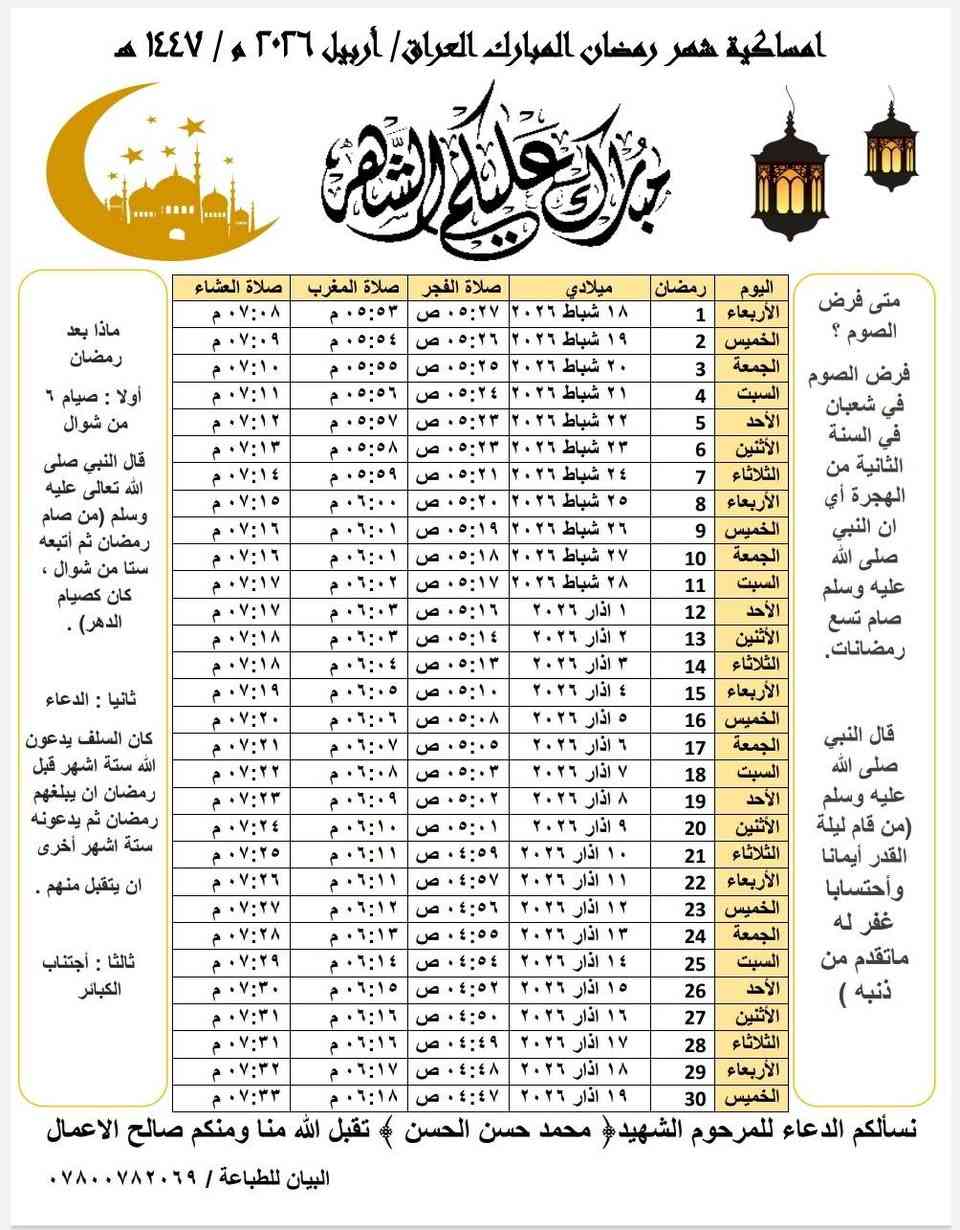 امساكية شهر رمضان المبارك العراق/ أربيل ٢٠٢٦ م / ١٤٤٧ هـ
مبارك عليكم الشهر
متى فرض
الصوم ؟
فرض الصوم
في شعبان
في السنة
الثانية من
الهجرة أي
ان النبي
صلى الله
عليه وسلم
صام تسع
رمضانات.
قال النبي
صلى الله
عليه وسلم
(من قام ليلة
القدر أيمانا
وأحتسابا
غفر له
ماتقدم من
ذنبه )
اليوم رمضان ميلادي صلاة الفجر صلاة المغرب صلاة العشاء
الأربعاء 1 ١٨ شباط ٢٠٢٦ ٠٥:٢٧ ص ٠٥:٥٣ م ٠٧:٠٨ م
الخميس 2 ١٩ شباط ٢٠٢٦ ٠٥:٢٦ ص ٠٥:٥٤ م ٠٧:٠٩ م
الجمعة 3 ٢٠ شباط ٢٠٢٦ ٠٥:٢٥ ص ٠٥:٥٥ م ٠٧:١٠ م
السبت 4 ٢١ شباط ٢٠٢٦ ٠٥:٢٤ ص ٠٥:٥٦ م ٠٧:١١ م
الأحد 5 ٢٢ شباط ٢٠٢٦ ٠٥:٢٣ ص ٠٥:٥٧ م ٠٧:١٢ م
الأثنين 6 ٢٣ شباط ٢٠٢٦ ٠٥:٢٣ ص ٠٥:٥٨ م ٠٧:١٣ م
الثلاثاء 7 ٢٤ شباط ٢٠٢٦ ٠٥:٢١ ص ٠٥:٥٩ م ٠٧:١٤ م
الأربعاء 8 ٢٥ شباط ٢٠٢٦ ٠٥:٢٠ ص ٠٦:٠٠ م ٠٧:١٥ م
الخميس 9 ٢٦ شباط ٢٠٢٦ ٠٥:١٩ ص ٠٦:٠١ م ٠٧:١٦ م
الجمعة 10 ٢٧ شباط ٢٠٢٦ ٠٥:١٨ ص ٠٦:٠١ م ٠٧:١٦ م
السبت 11 ٢٨ شباط ٢٠٢٦ ٠٥:١٧ ص ٠٦:٠٢ م ٠٧:١٧ م
الأحد 12 ١ اذار ٢٠٢٦ ٠٥:١٦ ص ٠٦:٠٣ م ٠٧:١٧ م
الأثنين 13 ٢ اذار ٢٠٢٦ ٠٥:١٤ ص ٠٦:٠٣ م ٠٧:١٨ م
الثلاثاء 14 ٣ اذار ٢٠٢٦ ٠٥:١٣ ص ٠٦:٠٤ م ٠٧:١٨ م
الأربعاء 15 ٤ اذار ٢٠٢٦ ٠٥:١٠ ص ٠٦:٠٥ م ٠٧:١٩ م
الخميس 16 ٥ اذار ٢٠٢٦ ٠٥:٠٨ ص ٠٦:٠٦ م ٠٧:٢٠ م
الجمعة 17 ٦ اذار ٢٠٢٦ ٠٥:٠٥ ص ٠٦:٠٧ م ٠٧:٢١ م
السبت 18 ٧ اذار ٢٠٢٦ ٠٥:٠٣ ص ٠٦:٠٨ م ٠٧:٢٢ م
الأحد 19 ٨ اذار ٢٠٢٦ ٠٥:٠٢ ص ٠٦:٠٩ م ٠٧:٢٣ م
الأثنين 20 ٩ اذار ٢٠٢٦ ٠٥:٠١ ص ٠٦:١٠ م ٠٧:٢٤ م
الثلاثاء 21 ١٠ اذار ٢٠٢٦ ٠٤:٥٩ ص ٠٦:١١ م ٠٧:٢٥ م
الأربعاء 22 ١١ اذار ٢٠٢٦ ٠٤:٥٧ ص ٠٦:١١ م ٠٧:٢٦ م
الخميس 23 ١٢ اذار ٢٠٢٦ ٠٤:٥٦ ص ٠٦:١٢ م ٠٧:٢٧ م
الجمعة 24 ١٣ اذار ٢٠٢٦ ٠٤:٥٥ ص ٠٦:١٣ م ٠٧:٢٨ م
السبت 25 ١٤ اذار ٢٠٢٦ ٠٤:٥٤ ص ٠٦:١٤ م ٠٧:٢٩ م
الأحد 26 ١٥ اذار ٢٠٢٦ ٠٤:٥٢ ص ٠٦:١٥ م ٠٧:٣٠ م
الأثنين 27 ١٦ اذار ٢٠٢٦ ٠٤:٥٠ ص ٠٦:١٦ م ٠٧:٣١ م
الثلاثاء 28 ١٧ اذار ٢٠٢٦ ٠٤:٤٩ ص ٠٦:١٦ م ٠٧:٣١ م
الأربعاء 29 ١٨ اذار ٢٠٢٦ ٠٤:٤٨ ص ٠٦:١٧ م ٠٧:٣٢ م
الخميس 30 ١٩ اذار ٢٠٢٦ ٠٤:٤٧ ص ٠٦:١٨ م ٠٧:٣٣ م
ماذا بعد
رمضان
أولا : صيام ٦
من شوال
قال النبي صلى
الله تعالى عليه
وسلم (من صام
رمضان ثم أتبعه
ستا من شوال ،
كان كصيام
الدهر) .
ثانيا : الدعاء
كان السلف يدعون
الله ستة اشهر قبل
رمضان ان يبلغهم
رمضان ثم يدعونه
ستة اشهر أخرى
ان يتقبل منهم .
ثالثا : أجتناب
الكبائر
نسألكم الدعاء للمرحوم الشهيد﴿ محمد حسن الحسن ﴾ تقبل الله منا ومنكم صالح الاعمال
البيان للطباعة / ٠٧٨٠٠٧٨٢٠٦٩